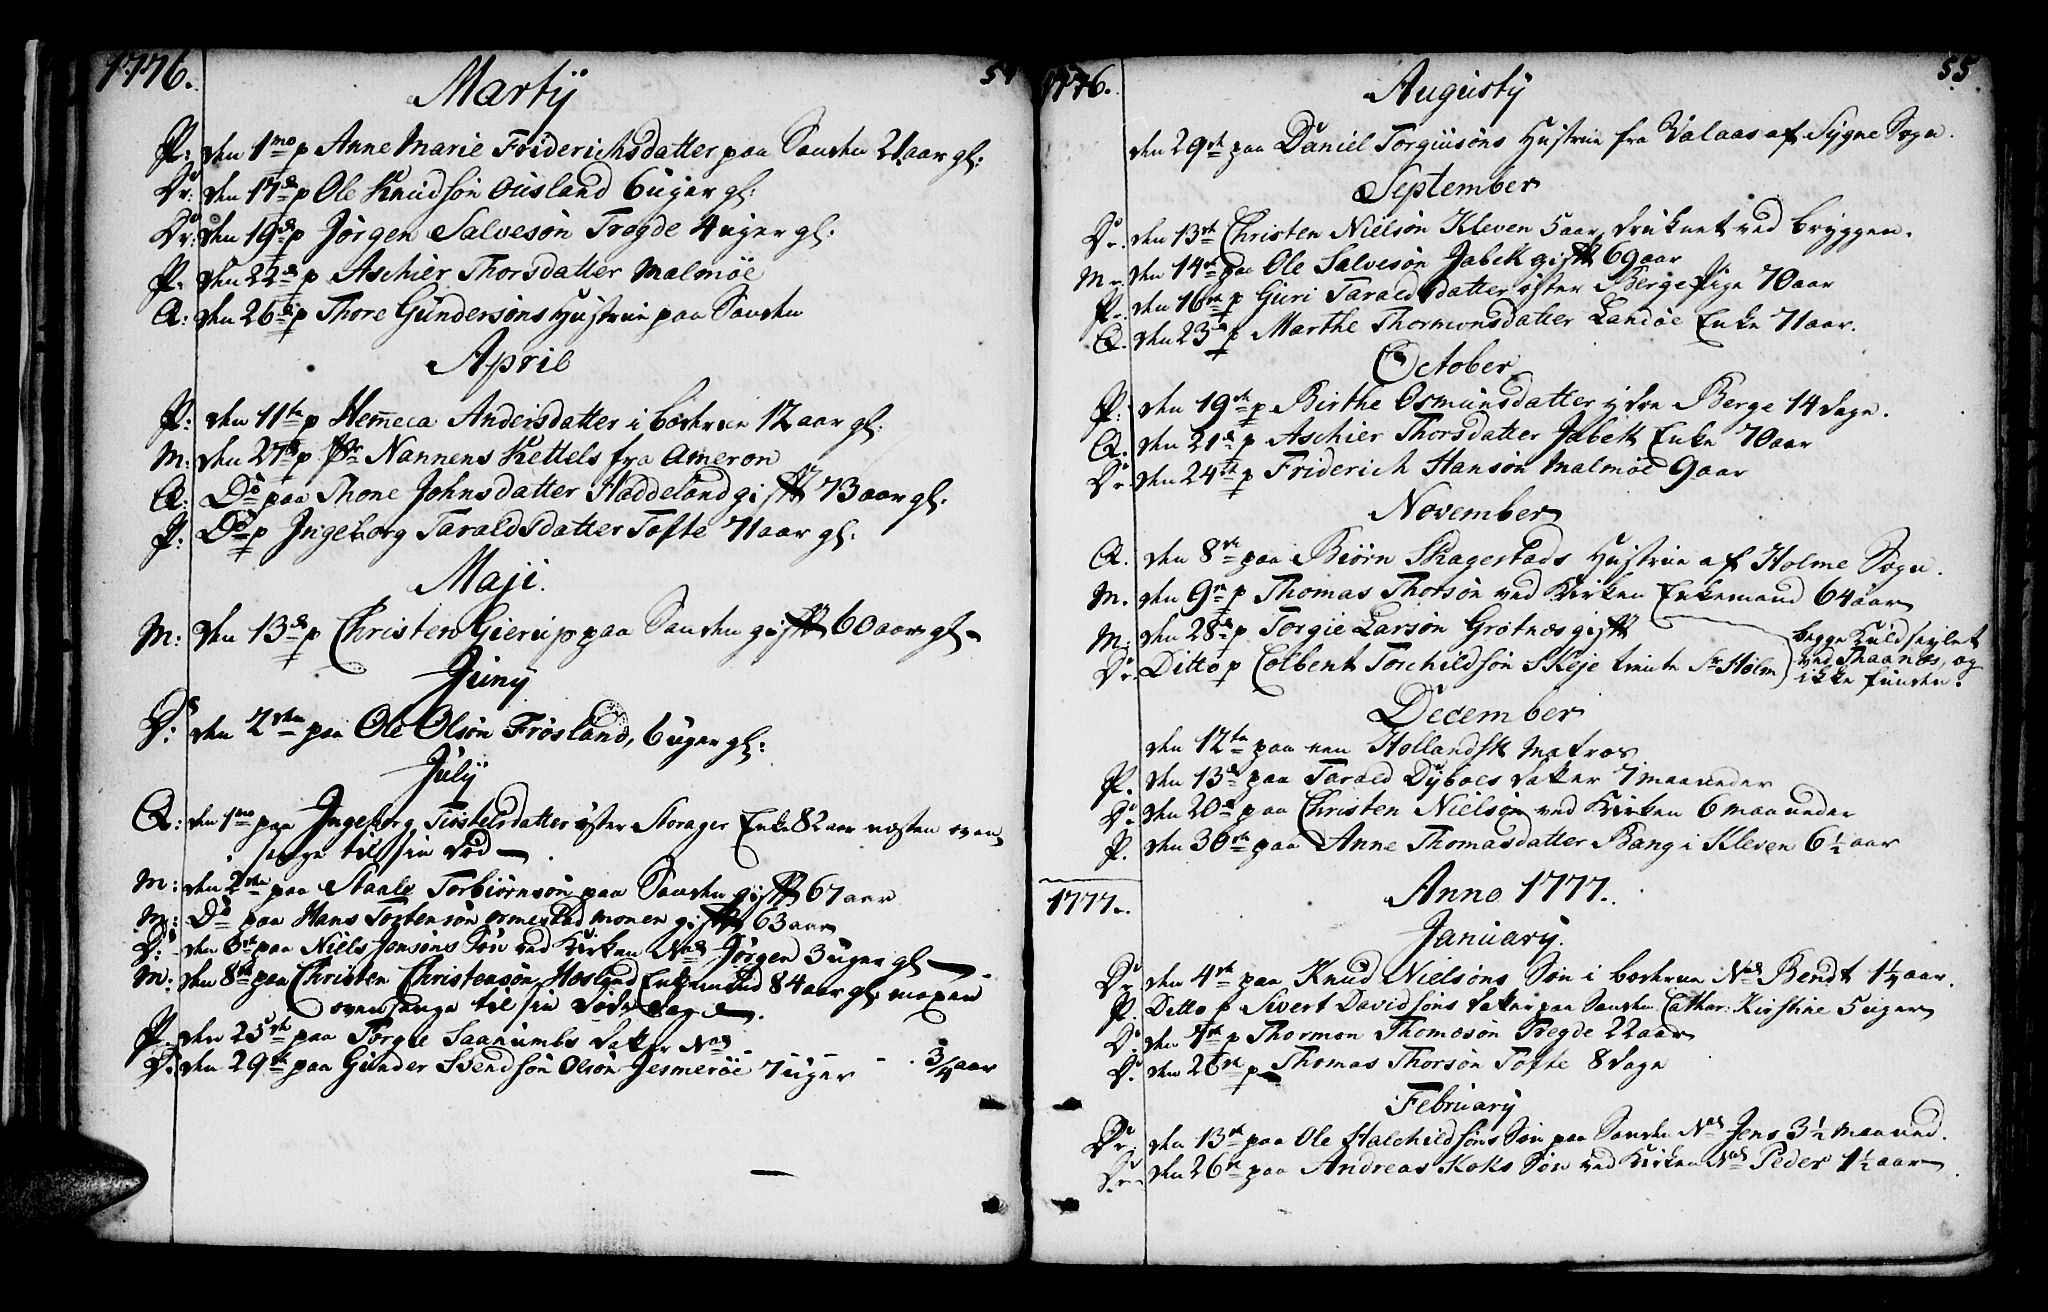 1776.
54
Martij
P: den 1mo p Anne Marie Friderichsdatter paa Sanden 21 aar gl:
Dr: den 17de p Ole Knudsøn Ousland 6 uger gl:
Dr: den 19de p Jørgen Salvesøn Tregde 4 uger gl:
P. den 22de p Aschier Thorsdatter Malmöe
Q: den 26de p Thore Gundersøns Hustrue paa Sanden
April
P: den 11te p Hemeca Andersdatter i Børkrue 12 aar gl.
M: den 27de p Nannens Kettels fra Ameron
Q: Do paa Thone Johnsdatter Haddeland gift 73 aar gl.
P: Do p Ingeborg Taraldsdatter Tofte 71 aar gl:
Maji.
M: den 13de p Christen Gierup paa Sanden gift 60 aar gl
Junij
D: den 2den paa Ole Olsøn Frøsland, 6 uger gl:
Julij
Q: den 1mo paa Ingeborg Tostelsdatter øster Storager Enke 82 aar næsten
senge til sin Død
M: den 2den paa Stanle Torbiørnsøn paa Sanden gift 67 aar
M: Do paa Hans Tostensøn Ormestad monen gift 63 aar
D: den 6te paa Niels Jensøns Søn ved Kirken Nas Jørgen 3 uger gl
M: den 8de paa Christen Christensøn Hoslund Enkemand 84 aar gl:
senge til sin Døde Dag
P. den 25de paa Torgie Saanumbs Dater Nas
D: den 29de paa Gunder Svendsøn Olsøn Jesmerøe 7 uger 3/4 aar
1776.
55
Augustij
den 29de paa Daniel Torgiusøns Hustrue fra Valaas af Sygne Sogn.
September
Dr. den 13de Christen Nielsøn Kleven 5 aar druknet ved Bryggen.
M. den 14de paa Ole Salvesøn Jabek gift 69 aar
P. den 16de p Guri Taraldsdatter øster Berge Pige 70 aar
Q. den 23de p Marthe Thormonsdatter Landøe Enke 71 aar.
October
P. den 19de p Birthe Osmunsdatter ydre Berge 14 dage.
Q. den 21de p Aschier Thorsdatter Jabek Enke 70 aar
Dr. den 24de p Friderich Hansøn Malmøe 9 aar
November
Q. den 8de paa Biørn Skagestads Hustrue af Holme Sogn.
M. den 9de p Thomas Thorsøn ved Kirken Enkemand 64 aar
M: den 28de p Torgie Larsøn Grotnes gift
Dr. Ditto p Colbent Torchildsøn Skeje tiente Sr Holm
begge Kuldseylet
ved Thaanes, og
ikke funden.
December
den 12te paa een Hollandsk Matros
P. den 13de paa Tarald Dyboes Dater 7 maaneder
Dr. den 20de paa Christen Nielsøn ved Kirken 6 maaneder
P. den 30de paa Anne Thomasdatter Bang i Kleven 6 1/2 aar
1777.
Anno 1777.
Januarij.
Dr. den 4de paa Knud Nielsøns Søn i Børkrue Nas Bendt 1 1/4 aar.
P. Ditto p Sivert Davidsøns Dater paa Sanden Cathar: Kirstine 5 uger
Dr. den 7de p Thormon Thomesøn Tregde 22 aar
D. den 26de p Thomas Thorsøn Tofte 8 dage
Februarij
Dr. den 13de paa Ole Halchildsøns Søn paa Sanden Nas Jens 3 1/2 maaned.
Dr. den 26de paa Andreas Koks Søn ved Kirken Nas Peder 1 1/2 aar